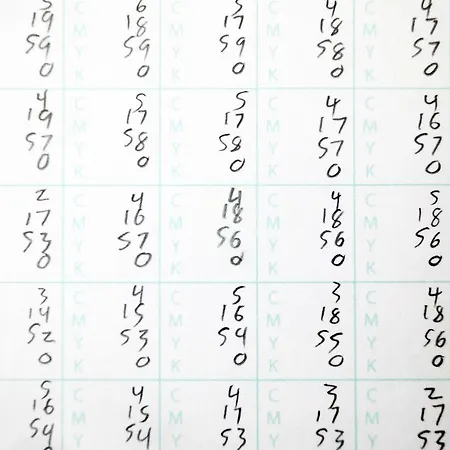 C 6 C C 4 C 4
19 M 18 M 17 M 18 M 17
59 Y 59 Y 59 Y 58 Y 57
0 K 0 K 0 K 0 K 0
4 C 5 C 5 C 4 C 4
19 M 17 M 17 M 17 M 16
57 Y 58 Y 58 Y 57 Y 57
0 K 0 K 0 K 0 K 0
2 C 4 C 4 C 4 C 5
17 M 16 M 18 M 18 M 18
53 Y 57 Y 56 Y 56 Y 56
0 K 0 K 0 K 0 K 0
3 C 4 C 5 C 3 C 4
14 M 15 M 16 M 18 M 18
52 Y 53 Y 54 Y 55 Y 56
0 K 0 K 0 K 0 K 0
5 C 4 C 4 C 3 C 2
16 M 15 M 17 M 17 M 17
54 Y 54 Y 53 Y 53 Y 53